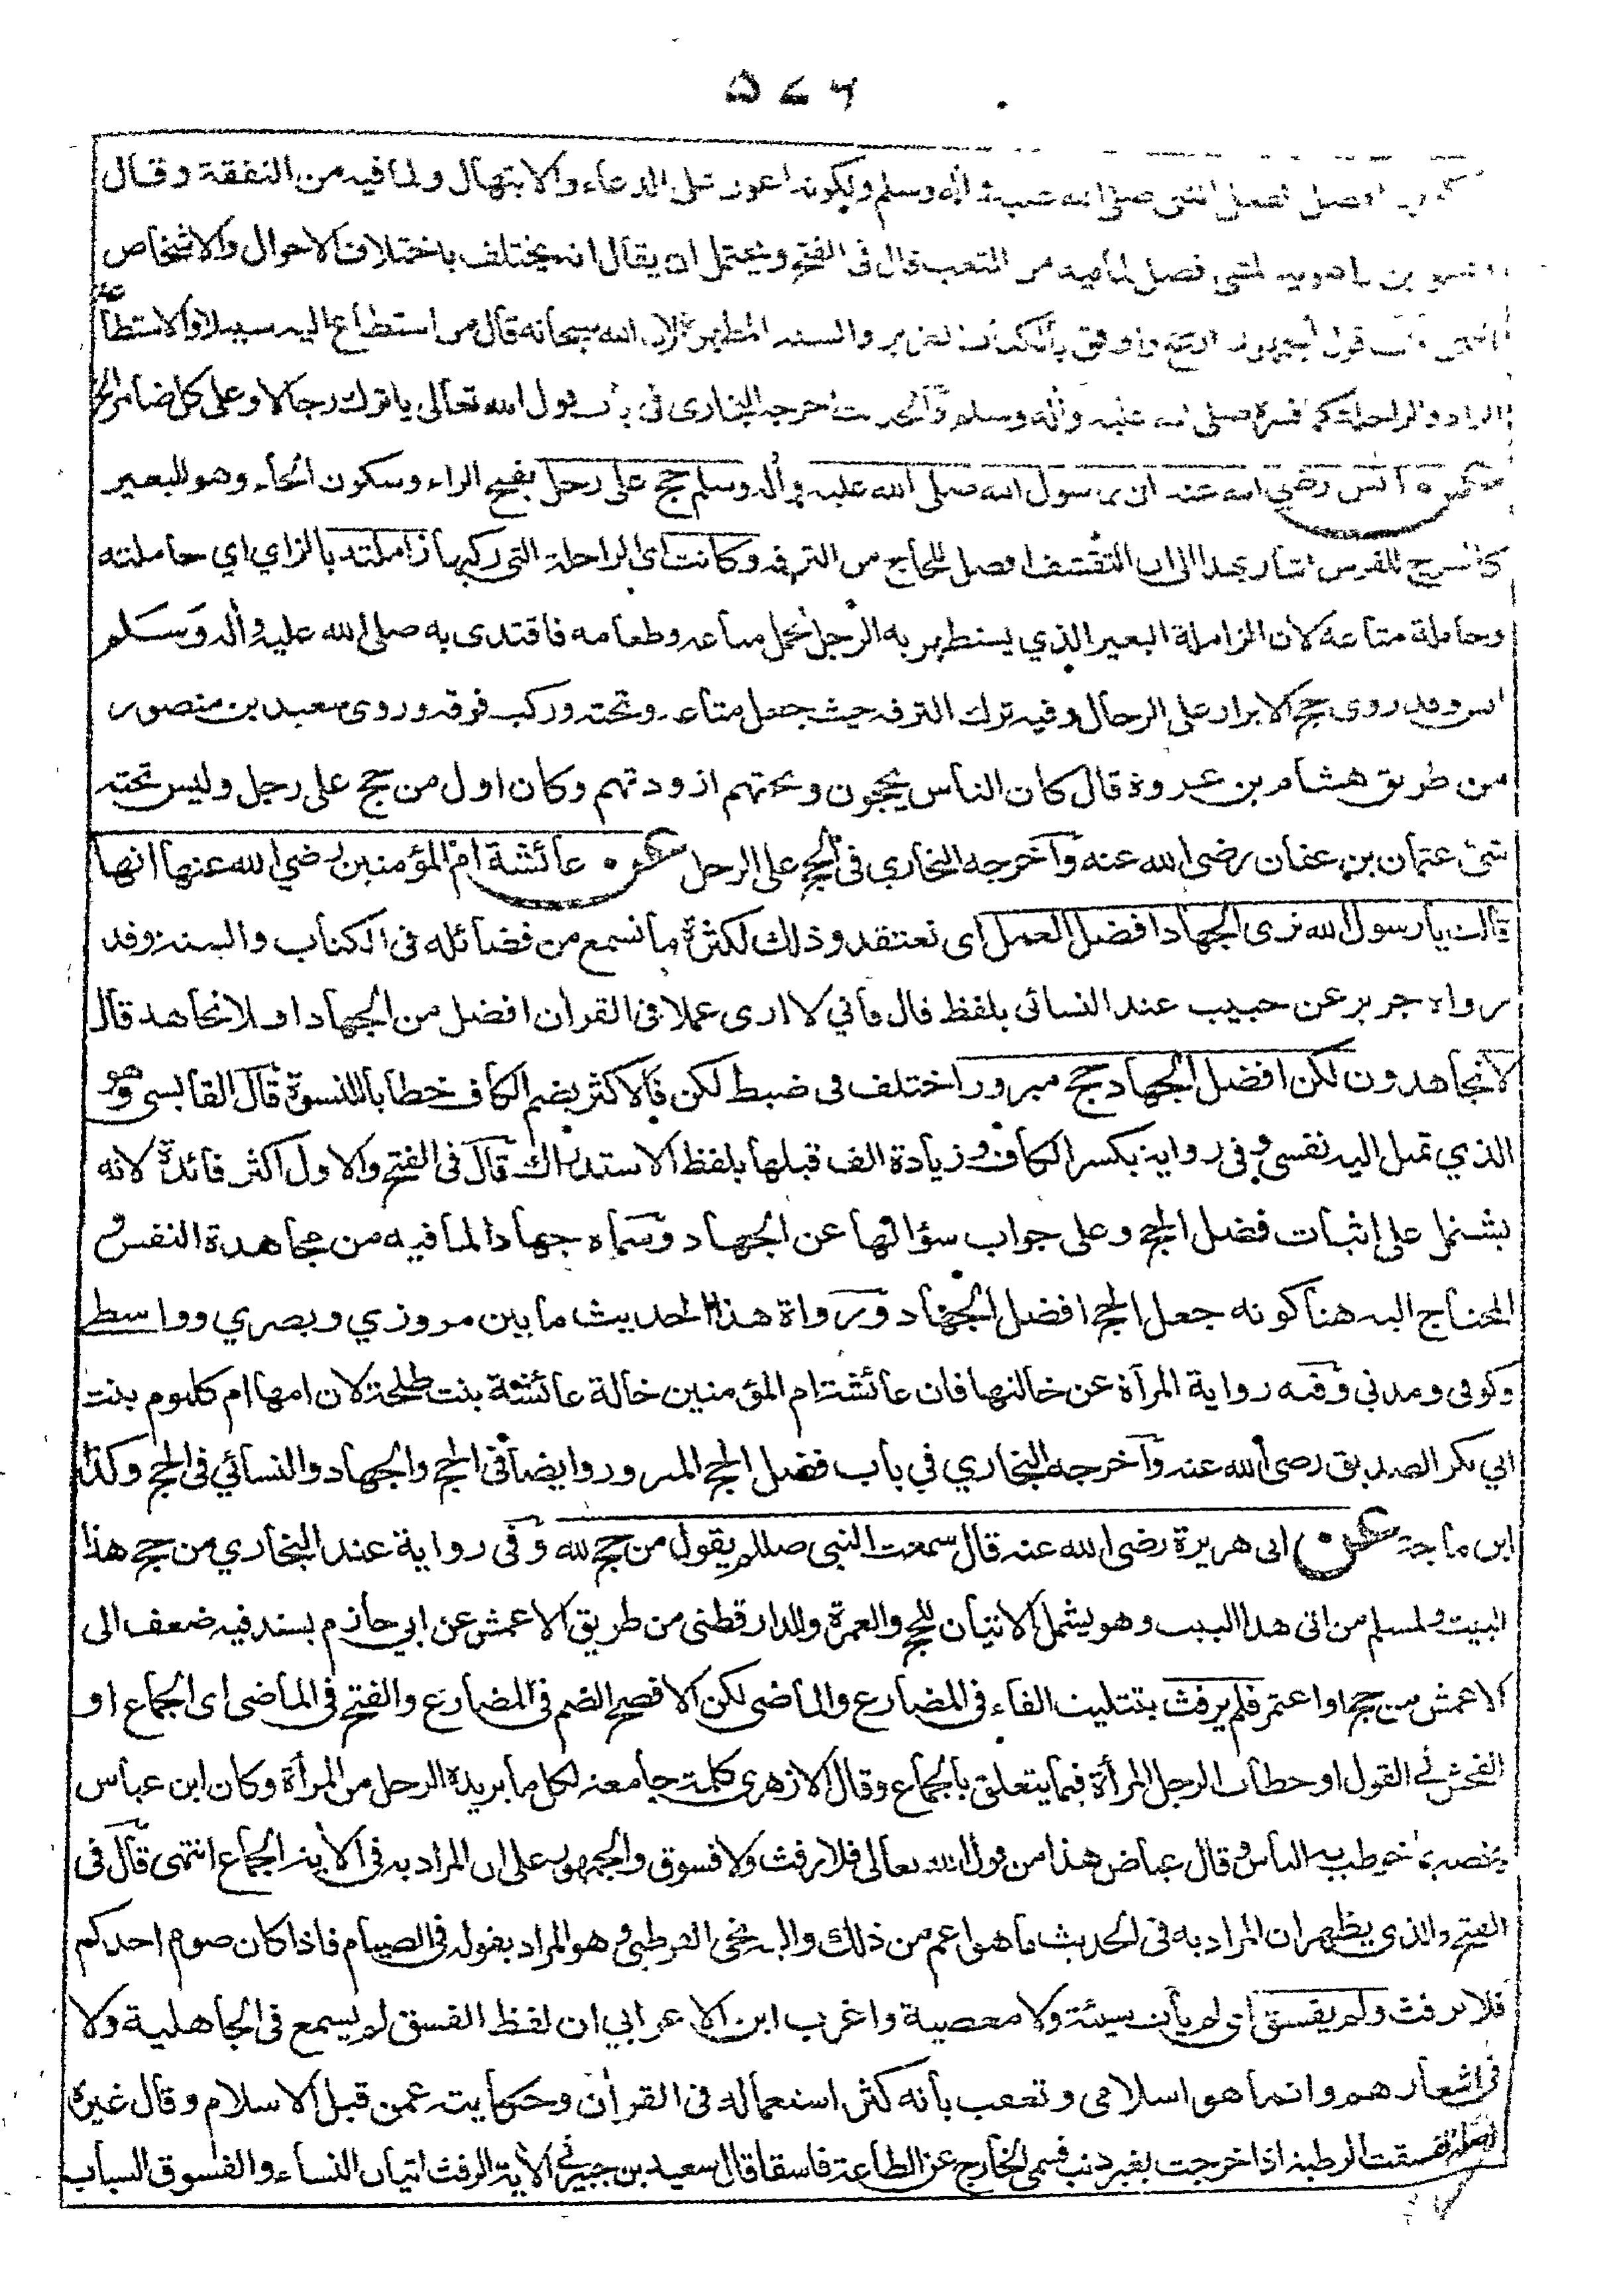 ۵۷۶
افضل لفعل النبي صلى الله عليه وآله وسلم ولكونه اعون على الدعاء والابتهال ولما فيه من النفقة وقال
بن راهويه المشى فضل لما فيه من التعب قال فى الفتح ويحتمل ان يقال انه يختلف باختلاف الاحوال والاشخاص
قول الجمهور اوفق بالكتاب العزيز والسنة المطهرة لان الله سبحانه قال من استطاع اليه سبيلا والاستطاعة
الزاد والراحلة كما فسره صلى الله عليه وآله وسلم والحديث اخرجه البخارى فى باب قول الله تعالى ياتوك رجالا وعلى كل ضامر الخ
عن انس رضي الله عنه ان رسول الله صلى الله عليه وآله وسلم حج على رحل بفتح الراء وسكون الحاء وهو للبعير
كالسرج للفرس اشار بهذا الى ان التقشف افضل للحاج من الترفه وكانت اى الراحلة التى ركبها زاملته بالزاي اي حاملته
وحاملة متاعه لان الزاملة البعير الذي يستظهر به الرجل لحمل متاعه وطعامه فاقتدى به صلى الله عليه وآله وسلم
انس وقد روى حج الابرار على الرحال وفيه ترك الترفه حيث جعل متاعه وتحته وركب فوقه وروى سعيد بن منصور
من طريق هشام بن عروة قال كان الناس يحجون وتحتهم ازودتهم وكان اول من حج على رحل وليس تحته
شئ عثمان بن عفان رضي الله عنه وآخرجه البخاري فى الحج على الرحل عن عائشة ام المؤمنين رضي الله عنها انها
قالت يا رسول الله نرى الجهاد افضل العمل اى نعتقد وذلك لكثرة ما نسمع من فضائله فى الكتاب والسنة وقد
رواه جرير عن حبيب عند النسائى بلفظ قال فاني لا ارى عملا فى القران افضل من الجهاد اولا نجاهد قال
لا تجاهدون لكن افضل الجهاد حج مبرور اختلف فى ضبط لكن فالاكثر بضم الكاف خطابا للنسوة قال القابسى وهو
الذي تميل اليه نفسى وفى رواية بكسر الكاف وزيادة الف قبلها بلفظ الاستدراك قال فى الفتح والاول اكثر فائدة لانه
يشتمل على اثبات فضل الحج وعلى جواب سؤالها عن الجهاد وسماه جهادا لما فيه من مجاهدة النفس و
المحتاج اليه هنا كونه جعل الحج افضل الجهاد ورواة هذا الحديث ما بين مروزي وبصري وواسط
وكوفى ومدني وفيه رواية المرأة عن خالتها فان عائشة ام المؤمنين خالة عائشة بنت طلحة لان امها ام كلثوم بنت
ابي بكر الصديق رضى الله عنه وآخرجه البخاري في باب فضل الحج المبرور وايضا فى الحج والجهاد والنسائي فى الحج وكذا
ابن ماجة عن ابى هريرة رضى الله عنه قال سمعت النبى صللم يقول من حج لله وفى رواية عند البخاري من حج هذا
البيت ولمسلم من اتى هذا البيت وهو يشمل الاتيان للحج والعمرة وللدارقطنى من طريق الاعمش عن ابي حازم بسند فيه ضعف الى
الاعمش من حج او اعتمر فلم يرفث بتثليث الفاء فى المضارع والماضى لكن الافصح الضم فى المضارع والفتح فى الماضى اى الجماع او
الفحش في القول او خطاب الرجل المرأة فيما يتعلق بالجماع وقال الازهرى كلمة جامعة لكل ما يريده الرجل من المرأة وكان ابن عباس
يخصه بما خوطب به النساء وقال عياض هذا من قول الله تعالى فلا رفث ولا فسوق والجمهور على ان المراد به فى الاية الجماع انتهى قال فى
الفتح والذي يظهر ان المراد به فى الحديث ما هو اعم من ذلك واليه نحى القرطبى وهو المراد بقوله فى الصيام فاذا كان صوم احدكم
فلا يرفث ولم يفسق اى لم يأت بسيئة ولا معصية واغرب ابن الاعرابي ان لفظ الفسق لم يسمع فى الجاهلية ولا
فى اشعارهم وانما هو اسلامى وتعقب بأنه كثر استعماله فى القرأن وحكايته عمن قبل الاسلام وقال غيره
اصله فسقت الرطبة اذا خرجت بقبردنب فسمى الخارج عن الطاعة فاسقا قال سعيد بن جبير في الآية الرفث اتيان النساء والفسوق السباب